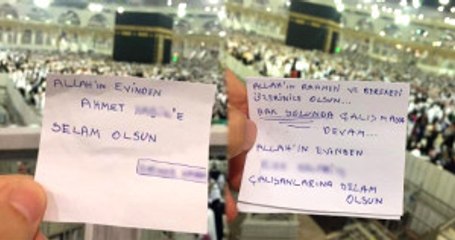 ALLAH'ın EVİNDEN
AHMET 'E
SELAM OLSUN
ALLAH'ın RAHMETİ VE BEREKETİ
ÜZERİNİZE OLSUN...
HAK YOLUNDA ÇALIŞMAYA
DEVAM...
ALLAH'IN EVİNDEN
ÇALIŞANLARINA SELAM
OLSUN